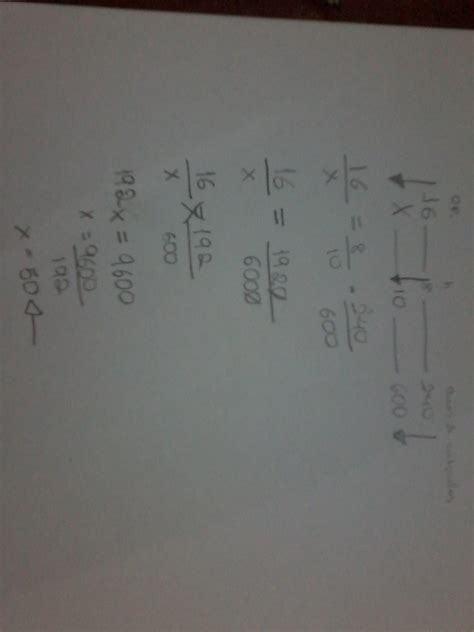 op. h
16 8 240
X 10 600
16/x = 8/10 . 240/600
16/x = 1920/6000
16/x 192/600
192x = 9600
x = 9600/192
x = 50